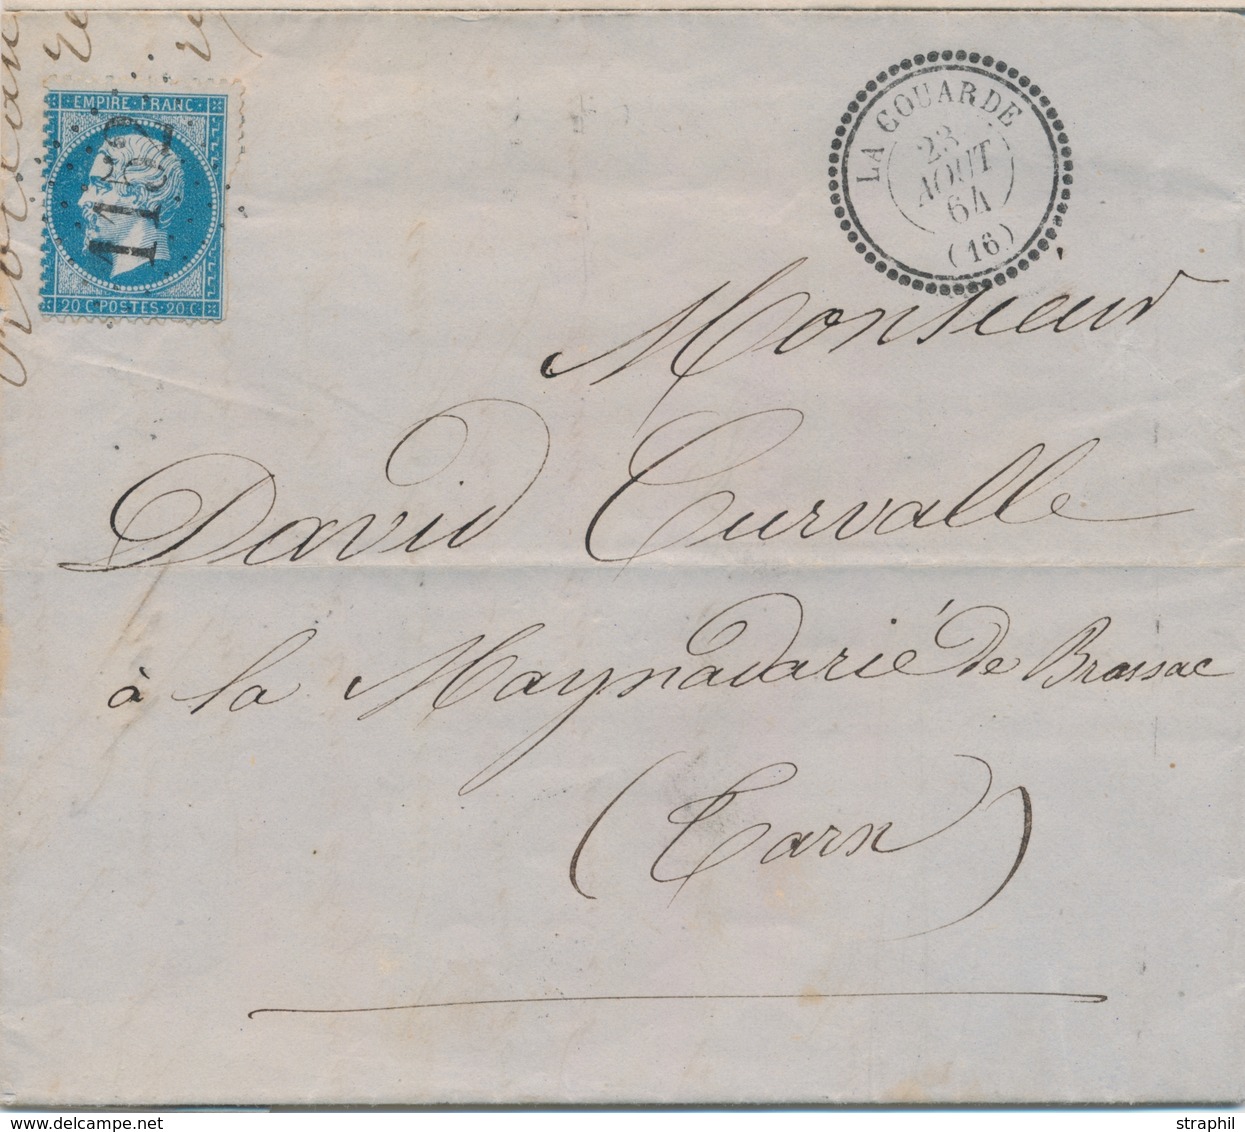 EMPIRE FRANC
1132
20 C POSTES 20 C
LA COUARDE
23
AOUT
64
(16)
Monsieur
David Curvalle
à la Maynadarié de Brassac
(Tarn)
delcampe.net
straphil